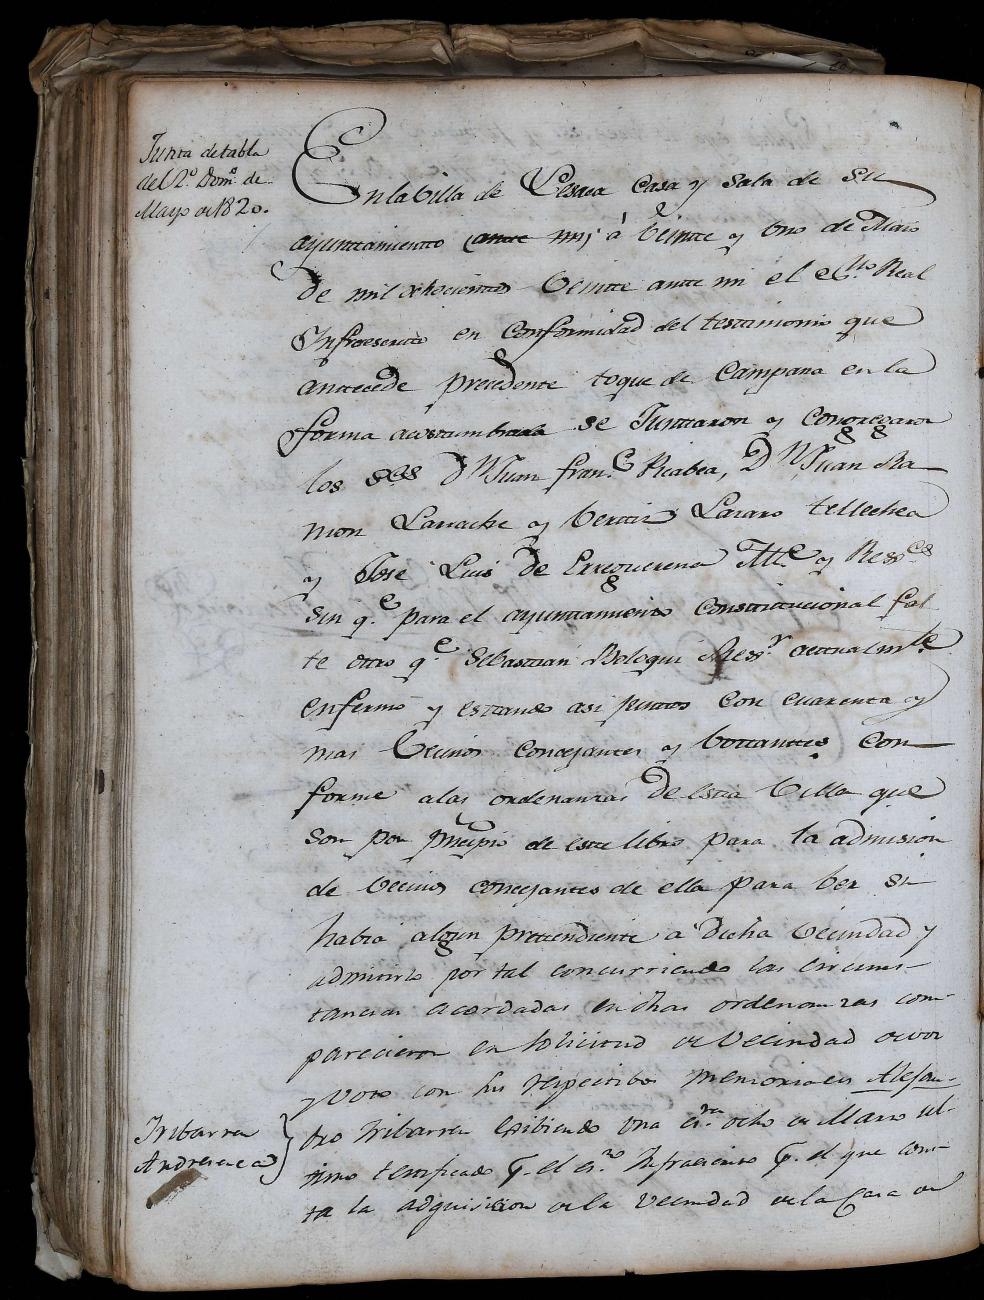 Junta de tabla
del 2.º Dom.º de
Mayo de 1820.
En la Villa de Lesaca Casa y Sala de Su
ayunttamientto antte mi, à Veintte y Uno de Maio
de mil ochocienttos Veintte antte mi el Es.no Real
Infraescritto en Conformidad del testimonio que
anttecede precedente toque de Campana en la
forma acostumbrada se Junttaron y Congregaron
los S.res D.n Juan Fran.co Picabea, D.n Juan Ra-
mon Larrache y Berttiz Lazaro tellechea
y Jose Luis de Erreguerena Alt.e y Res.res
sin q.e para el ayunttamiento Consttitucional fal
te otro q.e Sebasttian Boloqui Res.r acttualm.te
enfermo y esttando asi junttos con cuarenta y
mas Vecinos concejantes y Vottanttes con-
forme a las ordenanzas de estta Villa que
son por principio de este libro para la admision
de Vecinos concejantes de ella para ver si
habia algun prettendiente a dicha Vecindad y
admitirlo por tal concurriendo las circuns-
tancias acordadas en dhas ordenanzas com-
parecieron en solicitud de Vecindad de voz
y Voto con sus respectibos memoriales Alejan-
dro Iribarren exibiendo una es.ra ocho de Marzo ul-
timo testificada p.r el es.no Infraescrito p.r el que cons-
ta la adquisicion de la Vecindad de la Casa de
Iribarren
Andresenea